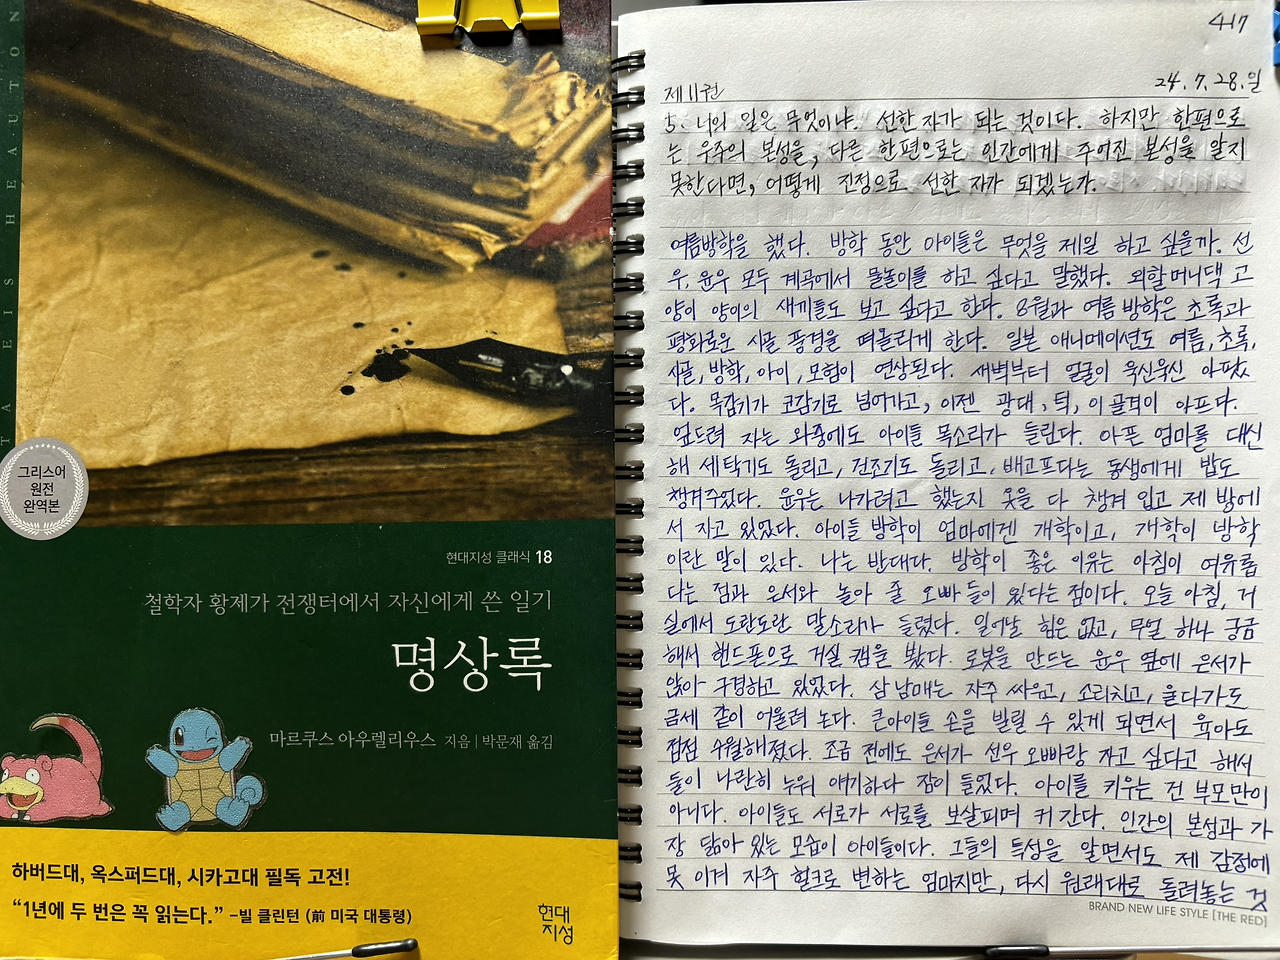 TAEISHEAUTON
그리스어
원전
완역본
현대지성 클래식 18
철학자 황제가 전쟁터에서 자신에게 쓴 일기
명상록
마르쿠스 아우렐리우스 지음 | 박문재 옮김
하버드대, 옥스퍼드대, 시카고대 필독 고전!
“1년에 두 번은 꼭 읽는다.” –빌 클린턴 (前 미국 대통령)
현대
지성
417
제11권
24. 7. 28. 일
5. 너의 일은 무엇이냐. 선한 자가 되는 것이다. 하지만 한편으로
는 우주의 본성을, 다른 한편으로는 인간에게 주어진 본성을 알지
못한다면, 어떻게 진정으로 선한 자가 되겠는가.
여름방학을 했다. 방학 동안 아이들은 무엇을 제일 하고 싶을까. 선
우, 윤우 모두 계곡에서 물놀이를 하고 싶다고 말했다. 외할머니댁 고
양이 양이의 새끼들도 보고 싶다고 한다. 8월과 여름 방학은 초록과
평화로운 시골 풍경을 떠올리게 한다. 일본 애니메이션도 여름, 초록,
시골, 방학, 아이, 모험이 연상된다. 새벽부터 얼굴이 욱신욱신 아팠
다. 목감기가 코감기로 넘어가고, 이젠 광대, 턱, 이 골격이 아프다.
엎드려 자는 와중에도 아이들 목소리가 들린다. 아픈 엄마를 대신
해 세탁기도 돌리고, 건조기도 돌리고, 배고프다는 동생에게 밥도
챙겨주었다. 윤우는 나가려고 했는지 옷을 다 챙겨 입고 제 방에
서 자고 있었다. 아이들 방학이 엄마에겐 개학이고, 개학이 방학
이란 말이 있다. 나는 반대다. 방학이 좋은 이유는 아침이 여유롭
다는 점과 은서와 놀아 줄 오빠들이 있다는 점이다. 오늘 아침, 거
실에서 도란도란 말소리가 들렸다. 일어날 힘은 없고, 무얼 하나 궁금
해서 핸드폰으로 거실 캠을 봤다. 로봇을 만드는 윤우 옆에 은서가
앉아 구경하고 있었다. 삼 남매는 자주 싸우고, 소리치고, 울다가도
금세 같이 어울려 논다. 큰아이들 손을 빌릴 수 있게 되면서 육아도
점점 수월해졌다. 조금 전에도 은서가 선우 오빠랑 자고 싶다고 해서
둘이 나란히 누워 얘기하다 잠이 들었다. 아이를 키우는 건 부모만이
아니다. 아이들도 서로가 서로를 보살피며 커 간다. 인간의 본성과 가
장 닮아 있는 모습이 아이들이다. 그들의 특성을 알면서도 제 감정에
못 이겨 자주 헐크로 변하는 엄마지만, 다시 원래대로 돌려놓는 것
BRAND NEW LIFE STYLE [THE RED]